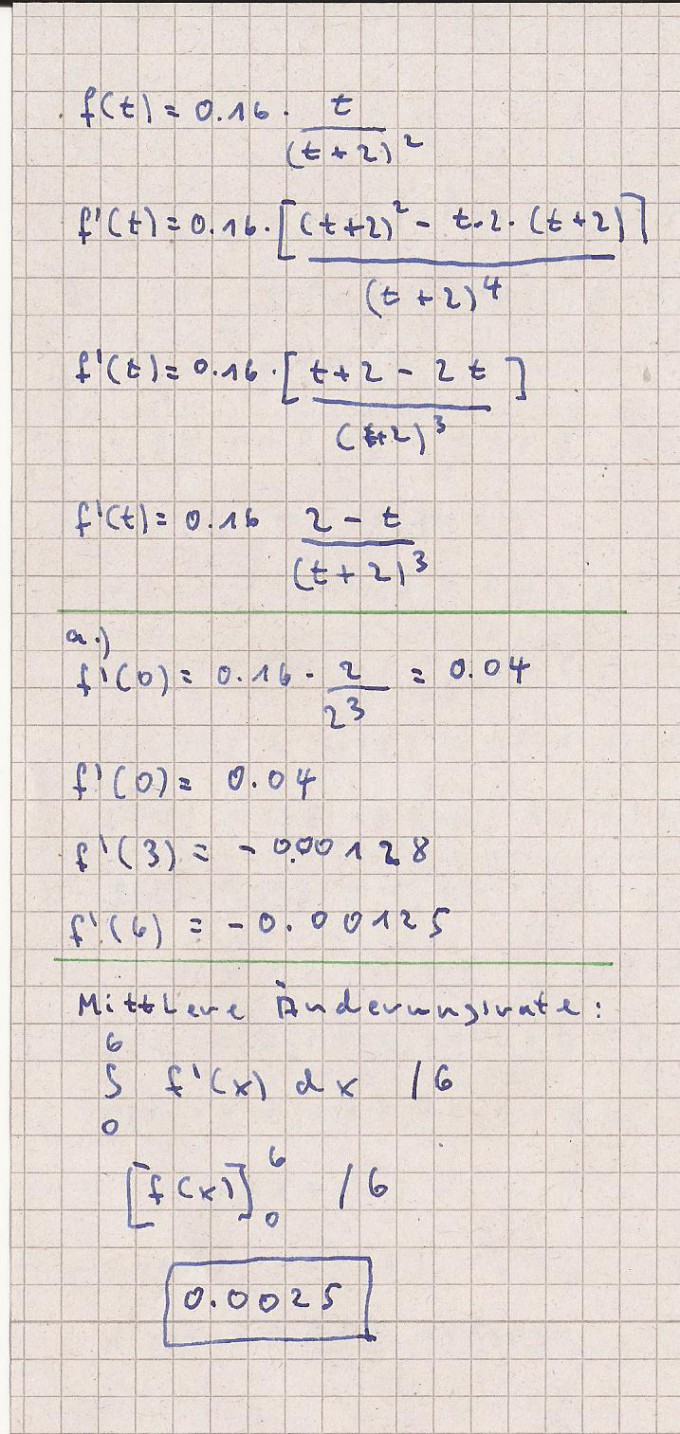 f(t) = 0.16 · t / (t+2)²
f'(t) = 0.16 · [(t+2)² - t·2·(t+2)] / (t+2)⁴
f'(t) = 0.16 · [t+2 - 2t] / (t+2)³
f'(t) = 0.16 2 - t / (t+2)³
a.)
f'(0) = 0.16 · 2 / 2³ = 0.04
f'(0) = 0.04
f'(3) = - 0.00128
f'(6) = - 0.00125
Mittlere Änderungsrate:
∫₀⁶ f'(x) dx / 6
[f(x)]₀⁶ / 6
0.0025